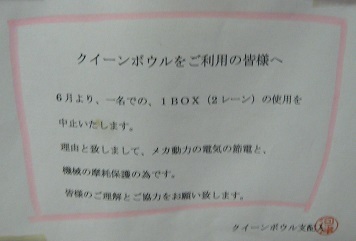 クイーンボウルをご利用の皆様へ
6月より、一名での、1BOX(2レーン)の使用を
中止いたします。
理由と致しまして、メカ動力の電気の節電と、
機械の摩耗保護の為です。
皆様のご理解とご協力をお願い致します。
クイーンボウル支配人